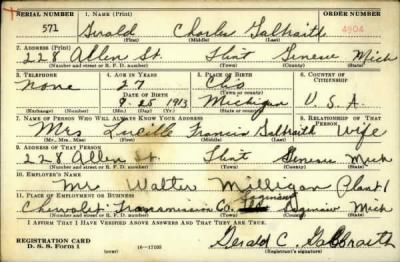 SERIAL NUMBER 1. NAME (Print) ORDER NUMBER
571 Gerald Charles Galbraith 4904
(First) (Middle) (Last)
2. ADDRESS (Print)
228 Allen St. Flint Genesee Mich
(Number and street or R. F. D. number) (Town) (County) (State)
3. TELEPHONE 4. AGE IN YEARS 5. PLACE OF BIRTH 6. COUNTRY OF CITIZENSHIP
None 27 Clio
DATE OF BIRTH (Town or county)
9-25-1913 Michigan U. S. A.
(Exchange) (Number) (Mo.) (Day) (Yr.) (State or country)
7. NAME OF PERSON WHO WILL ALWAYS KNOW YOUR ADDRESS 8. RELATIONSHIP OF THAT PERSON
Mrs Lucille Francis Galbraith Wife
(Mr., Mrs., Miss) (First) (Middle) (Last)
9. ADDRESS OF THAT PERSON
228 Allen St. Flint Genesee Mich
(Number and street or R. F. D. number) (Town) (County) (State)
10. EMPLOYER'S NAME
Mr. Walter Milligan Plant 1
11. PLACE OF EMPLOYMENT OR BUSINESS Saginaw
Chevrolet Transmission Co. Saginaw Mich
(Number and street or R. F. D. number) (Town) (County) (State)
I AFFIRM THAT I HAVE VERIFIED ABOVE ANSWERS AND THAT THEY ARE TRUE.
REGISTRATION CARD
D. S. S. Form 1 16—17105 Gerald C. Galbraith
(Registrant's signature)